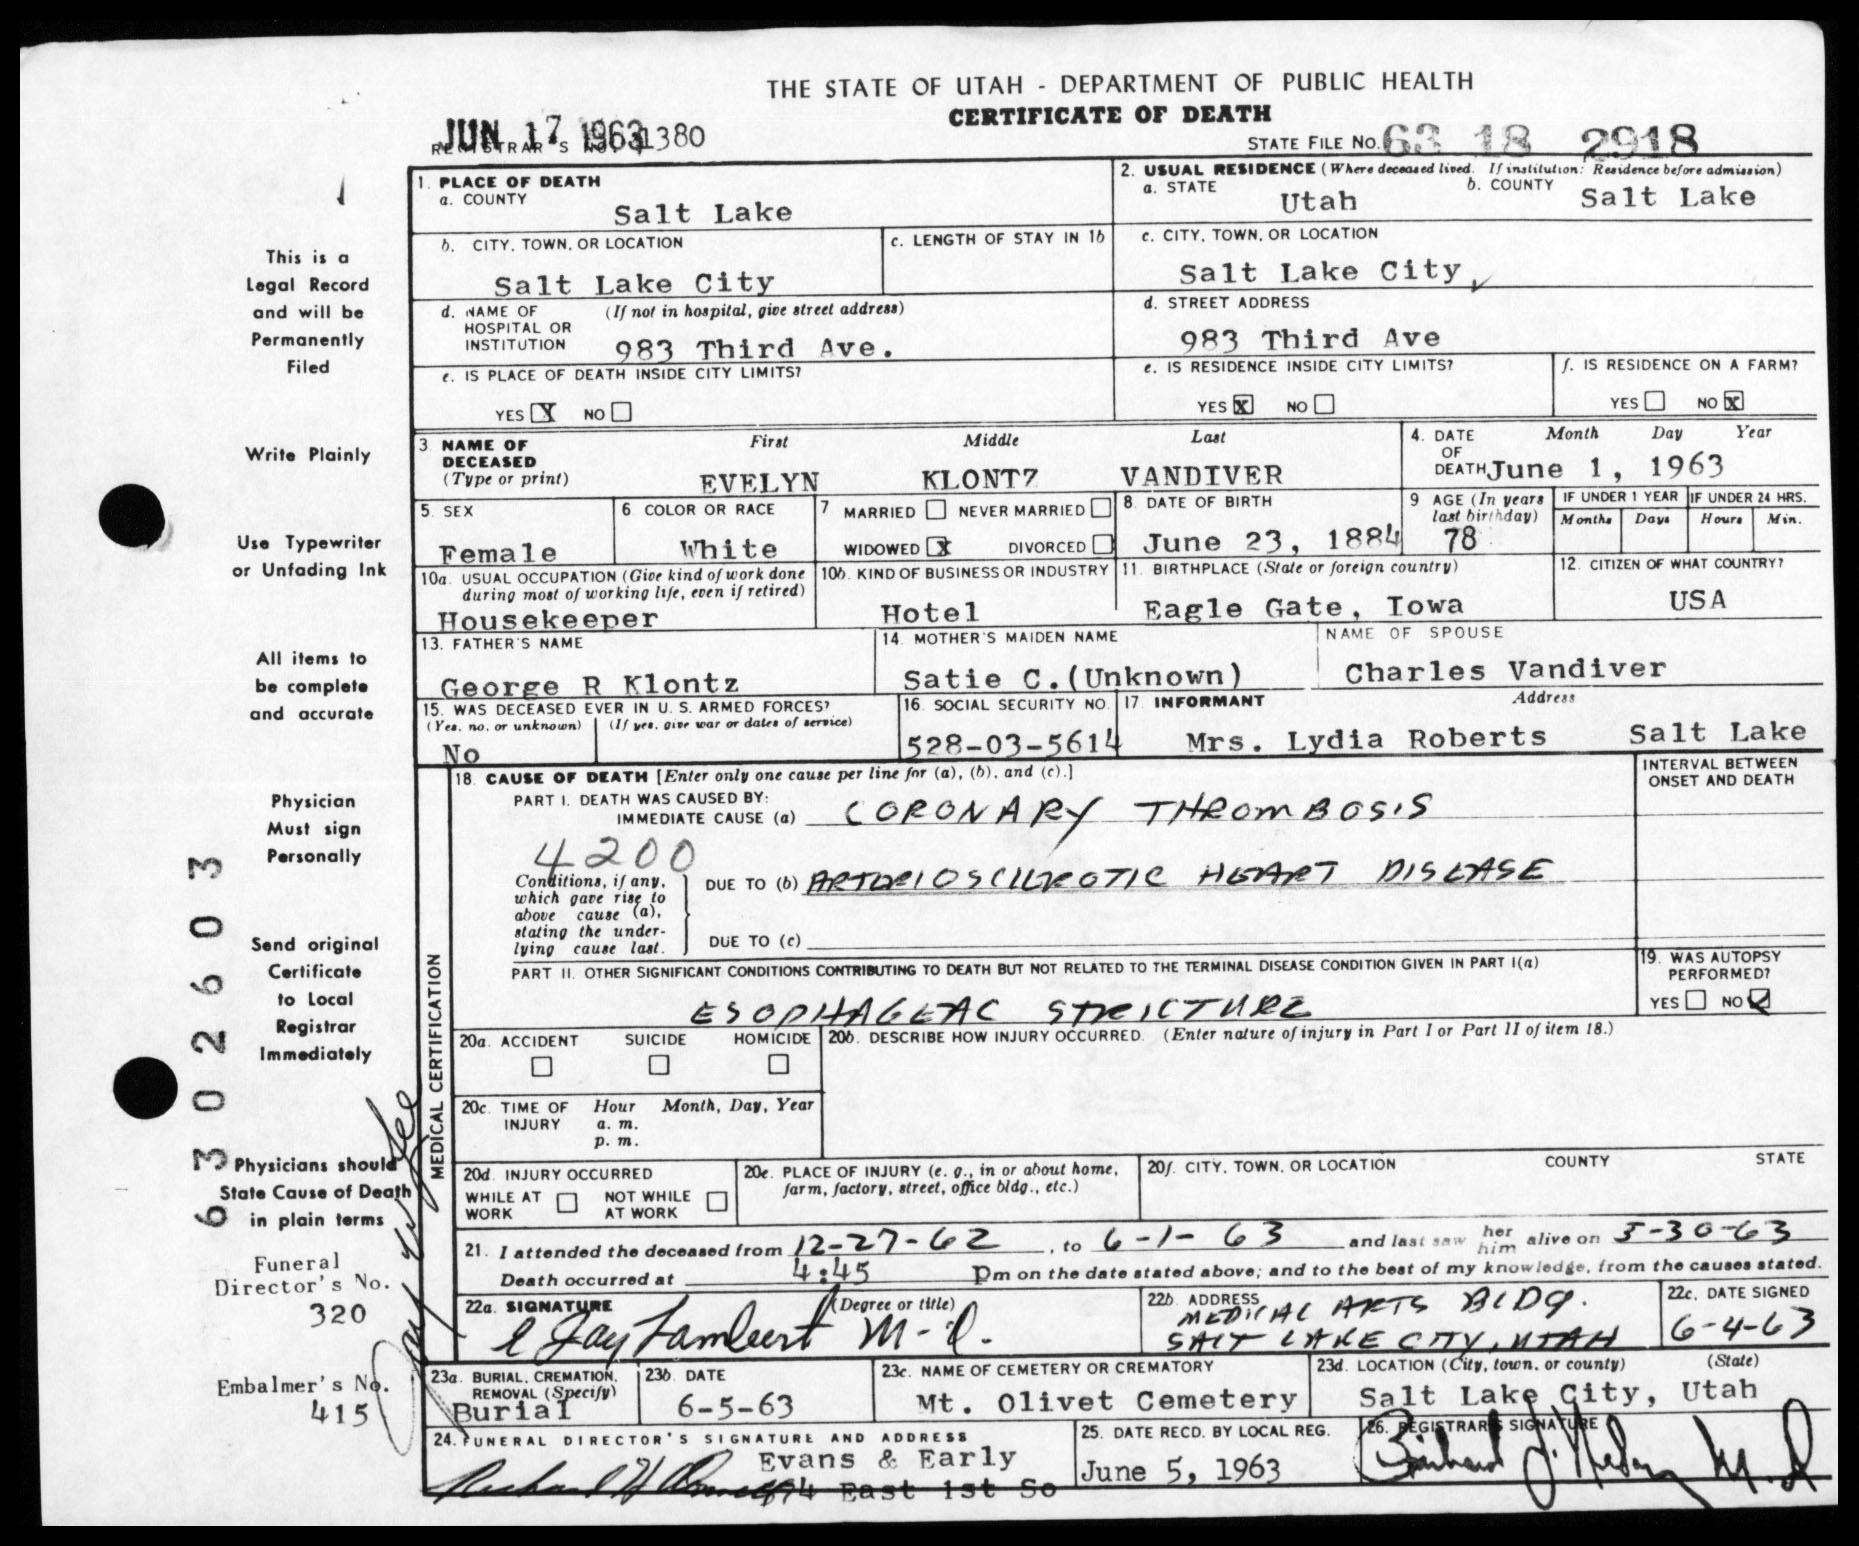 THE STATE OF UTAH - DEPARTMENT OF PUBLIC HEALTH
CERTIFICATE OF DEATH
JUN 17 1963
REGISTRAR'S NO. 1380
STATE FILE NO. 63 18 2918
1. PLACE OF DEATH
a. COUNTY
Salt Lake
2. USUAL RESIDENCE (Where deceased lived. If institution: Residence before admission)
a. STATE
Utah
b. COUNTY
Salt Lake
b. CITY, TOWN, OR LOCATION
Salt Lake City
c. LENGTH OF STAY IN 1b
c. CITY, TOWN, OR LOCATION
Salt Lake City
d. NAME OF HOSPITAL OR INSTITUTION (If not in hospital, give street address)
983 Third Ave.
d. STREET ADDRESS
983 Third Ave
e. IS PLACE OF DEATH INSIDE CITY LIMITS?
YES X NO
e. IS RESIDENCE INSIDE CITY LIMITS?
YES X NO
f. IS RESIDENCE ON A FARM?
YES NO X
3 NAME OF DECEASED (Type or print)
First Middle Last
EVELYN KLONTZ VANDIVER
4. DATE OF DEATH Month Day Year
June 1, 1963
5. SEX
Female
6. COLOR OR RACE
White
7 MARRIED NEVER MARRIED
WIDOWED X DIVORCED
8. DATE OF BIRTH
June 23, 1884
9 AGE (In years last birthday)
78
IF UNDER 1 YEAR
Months Days
IF UNDER 24 HRS.
Hours Min.
10a. USUAL OCCUPATION (Give kind of work done during most of working life, even if retired)
Housekeeper
10b. KIND OF BUSINESS OR INDUSTRY
Hotel
11. BIRTHPLACE (State or foreign country)
Eagle Gate, Iowa
12. CITIZEN OF WHAT COUNTRY?
USA
13. FATHER'S NAME
George R Klontz
14. MOTHER'S MAIDEN NAME
Satie C.(Unknown)
NAME OF SPOUSE
Charles Vandiver
15. WAS DECEASED EVER IN U.S. ARMED FORCES?
(Yes, no, or unknown) (If yes, give war or dates of service)
No
16. SOCIAL SECURITY NO.
528-03-5614
17. INFORMANT Address
Mrs. Lydia Roberts Salt Lake
MEDICAL CERTIFICATION
18. CAUSE OF DEATH [Enter only one cause per line for (a), (b), and (c).]
INTERVAL BETWEEN ONSET AND DEATH
PART I. DEATH WAS CAUSED BY:
IMMEDIATE CAUSE (a) CORONARY THROMBOSIS
4200
Conditions, if any, which gave rise to above cause (a), stating the underlying cause last.
DUE TO (b) ARTERIOSCLEROTIC HEART DISEASE
DUE TO (c)
PART II. OTHER SIGNIFICANT CONDITIONS CONTRIBUTING TO DEATH BUT NOT RELATED TO THE TERMINAL DISEASE CONDITION GIVEN IN PART I(a)
ESOPHAGEAC STRICTURE
19. WAS AUTOPSY PERFORMED?
YES NO
20a. ACCIDENT SUICIDE HOMICIDE
20b. DESCRIBE HOW INJURY OCCURRED. (Enter nature of injury in Part I or Part II of item 18.)
20c. TIME OF INJURY Hour a. m. p. m. Month, Day, Year
20d. INJURY OCCURRED
WHILE AT WORK NOT WHILE AT WORK
20e. PLACE OF INJURY (e. g., in or about home, farm, factory, street, office bldg., etc.)
20f. CITY, TOWN, OR LOCATION COUNTY STATE
21. I attended the deceased from 12-27-62, to 6-1-63 and last saw her him alive on 5-30-63
Death occurred at 4:45 pm on the date stated above; and to the best of my knowledge, from the causes stated.
22a. SIGNATURE (Degree or title)
E Jay Lambert M-D.
22b. ADDRESS
MEDICAL ARTS BLDG.
SALT LAKE CITY, UTAH
22c. DATE SIGNED
6-4-63
23a. BURIAL, CREMATION, REMOVAL (Specify)
Burial
23b. DATE
6-5-63
23c. NAME OF CEMETERY OR CREMATORY
Mt. Olivet Cemetery
23d. LOCATION (City, town, or county) (State)
Salt Lake City, Utah
24. FUNERAL DIRECTOR'S SIGNATURE AND ADDRESS
Evans & Early
East 1st So
25. DATE RECD. BY LOCAL REG.
June 5, 1963
26. REGISTRAR'S SIGNATURE
M.D
This is a
Legal Record
and will be
Permanently
Filed
Write Plainly
Use Typewriter
or Unfading Ink
All items to
be complete
and accurate
Physician
Must sign
Personally
Send original
Certificate
to Local
Registrar
Immediately
Physicians should
State Cause of Death
in plain terms
Funeral
Director's No.
320
Embalmer's No.
415
6302603